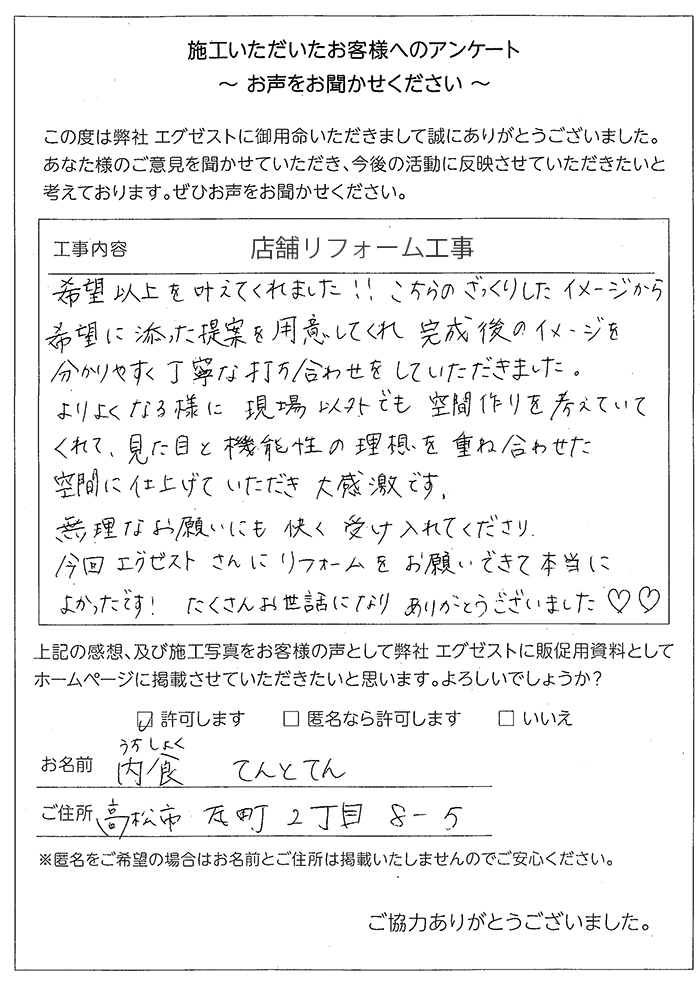 施工いただいたお客様へのアンケート
～ お声をお聞かせください ～
この度は弊社 エグゼストに御用命いただきまして誠にありがとうございました。
あなた様のご意見を聞かせていただき、今後の活動に反映させていただきたいと
考えております。ぜひお声をお聞かせください。
工事内容 店舗リフォーム工事
希望以上を叶えてくれました!! こちらのざっくりしたイメージから
希望に添った提案を用意してくれ 完成後のイメージを
分かりやすく丁寧な打ち合わせをしていただきました。
よりよくなる様に 現場以外でも 空間作りを考えていて
くれて、見た目と機能性の理想を重ね合わせた
空間に仕上げていただき 大感激です。
無理なお願いにも 快く 受け入れてくださり、
今回 エグゼスト さんに リフォームを お願いできて本当に
よかったです! たくさんお世話になり ありがとうございました♡♡
上記の感想、及び施工写真をお客様の声として弊社 エグゼストに販促用資料として
ホームページに掲載させていただきたいと思います。よろしいでしょうか?
☑ 許可します □ 匿名なら許可します □ いいえ
うちしょく
お名前 内食 てんとてん
ご住所 高松市 瓦町 2丁目 8-5
※匿名をご希望の場合はお名前とご住所は掲載いたしませんのでご安心ください。
ご協力ありがとうございました。